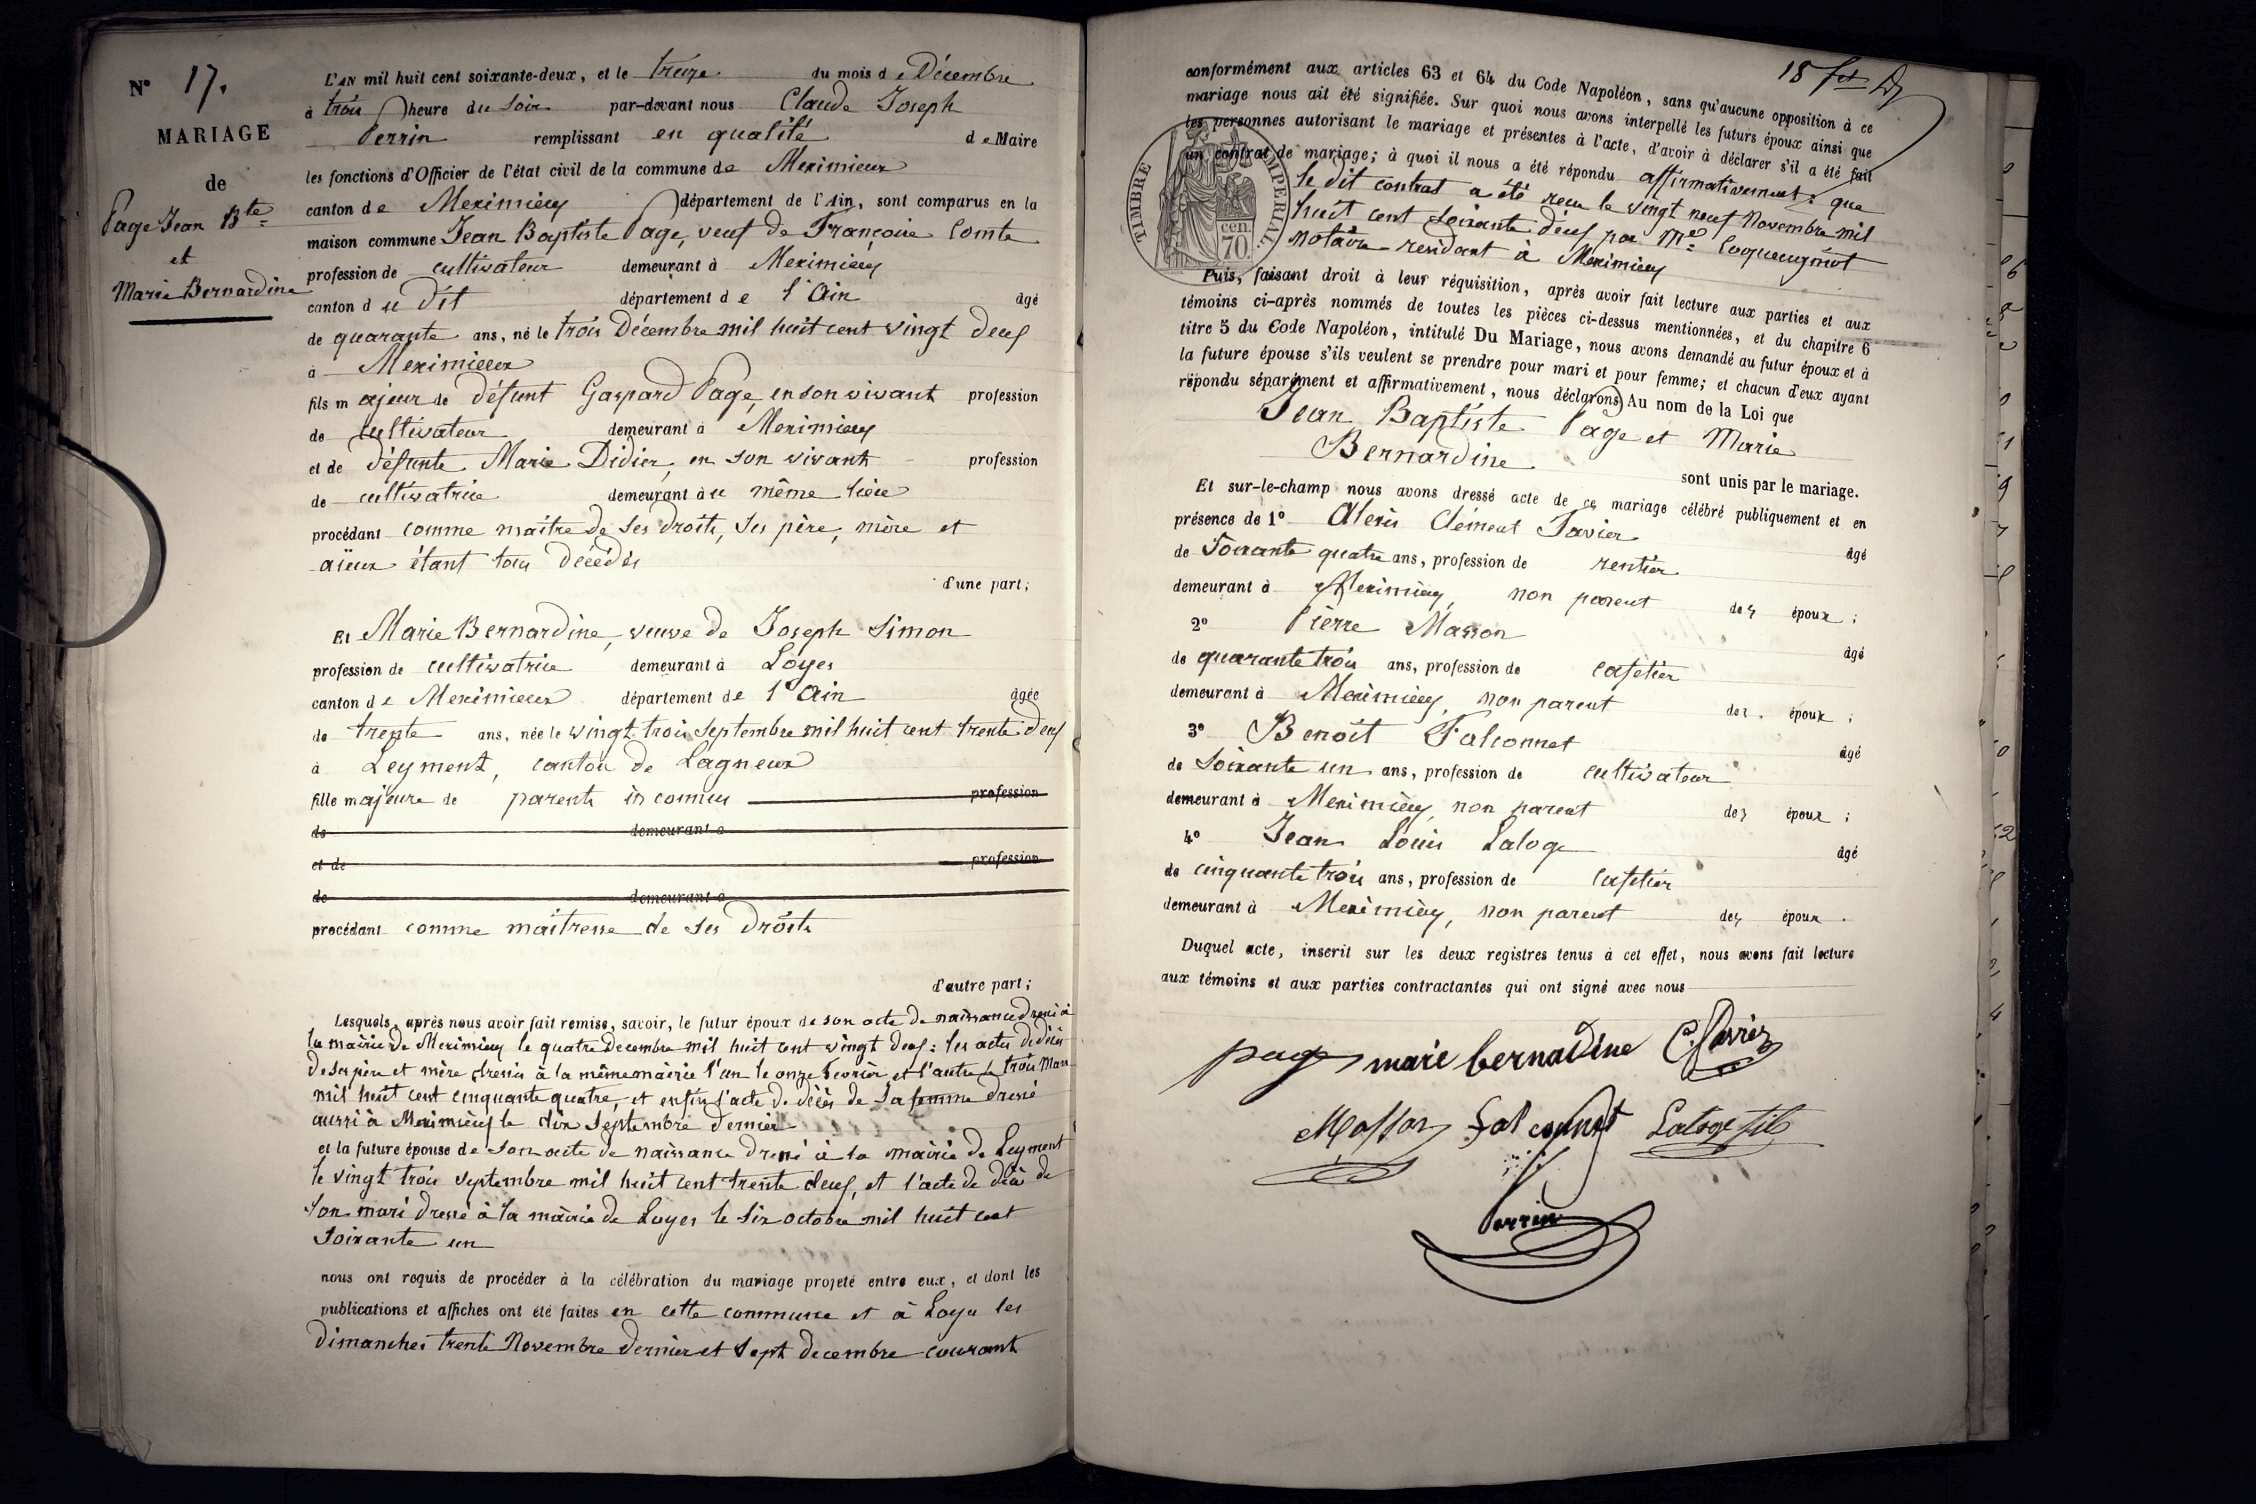 N° 17.
MARIAGE
de
Page Jean Bte
et
Marie Bernardine
L'AN mil huit cent soixante-deux, et le treize du mois de Décembre
à trois heure du soir par-devant nous Claude Joseph
Perrin remplissant en qualité de Maire
les fonctions d'Officier de l'état civil de la commune de Meximieux
canton de Meximieux département de l'Ain, sont comparus en la
maison commune Jean Baptiste Page, veuf de Françoise Comte
profession de cultivateur demeurant à Meximieux
canton du dit département de l'Ain âgé
de quarante ans, né le trois Décembre mil huit cent vingt deux
à Meximieux
fils majeur de défunt Gaspard Page, en son vivant profession
de cultivateur demeurant à Meximieux
et de défunte Marie Didier, en son vivant profession
de cultivatrice demeurant au même lieu
procédant comme maître de ses droits, ses père, mère et
aïeux étant tous décédés
d'une part;
Et Marie Bernardine, veuve de Joseph Simon
profession de cultivatrice demeurant à Loyes
canton de Meximieux département de l'Ain âgée
de trente ans, née le vingt trois Septembre mil huit cent trente deux
à Leyment, canton de Lagneux
fille majeure de parents inconnus profession
de demeurant à
et de profession
de demeurant à
procédant comme maîtresse de ses droits
d'autre part;
Lesquels, après nous avoir fait remise, savoir, le futur époux de son acte de naissance dressé à
la mairie de Meximieux le quatre Decembre mil huit cent vingt deux: les actes de décès
de ses père et mère dressés à la même mairie l'un le onze fevrier et l'autre le trois Mars
mil huit cent cinquante quatre, et enfin l'acte de décès de sa femme dressé
aussi à Meximieux le dix Septembre dernier
et la future épouse de son acte de naissance dressé à la mairie de Leyment
le vingt trois septembre mil huit cent trente deux, et l'acte de décès de
son mari dressé à la mairie de Loyes le six octobre mil huit cent
soixante un
nous ont requis de procéder à la célébration du mariage projeté entre eux, et dont les
publications et affiches ont été faites en cette commune et à Loyes les
dimanches trente Novembre dernier et sept decembre courant
18
conformément aux articles 63 et 64 du Code Napoléon, sans qu'aucune opposition à ce
mariage nous ait été signifiée. Sur quoi nous avons interpellé les futurs époux ainsi que
les personnes autorisant le mariage et présentes à l'acte, d'avoir à déclarer s'il a été fait
un contrat de mariage; à quoi il nous a été répondu affirmativement: que
le dit contrat a été reçu le vingt neuf Novembre mil
huit cent soixante deux par Me Coqueugniot
notaire residant à Meximieux
TIMBRE IMPERIAL.
cen.
70.
Puis, faisant droit à leur réquisition, après avoir fait lecture aux parties et aux
témoins ci-après nommés de toutes les pièces ci-dessus mentionnées, et du chapitre 6
titre 5 du Code Napoléon, intitulé Du Mariage, nous avons demandé au futur époux et à
la future épouse s'ils veulent se prendre pour mari et pour femme; et chacun d'eux ayant
répondu séparément et affirmativement, nous déclarons Au nom de la Loi que
Jean Baptiste Page et Marie
Bernardine
sont unis par le mariage.
Et sur-le-champ nous avons dressé acte de ce mariage célébré publiquement et en
présence de 1° Alexis Clément Favier
âgé
de Soixante quatre ans, profession de rentier
demeurant à Meximieux, non parent des époux;
2° Pierre Masson
âgé
de quarante trois ans, profession de cafetier
demeurant à Meximieux, non parent des époux;
3° Benoît Falconnet
âgé
de Soixante un ans, profession de cultivateur
demeurant à Meximieux, non parent des époux;
4° Jean Louis Laloge
âgé
de cinquante trois ans, profession de Cafetier
demeurant à Meximieux, non parent des époux.
Duquel acte, inscrit sur les deux registres tenus à cet effet, nous avons fait lecture
aux témoins et aux parties contractantes qui ont signé avec nous
page marie bernadine C. Favier
Masson Falconnet Laloge fils
Perrin